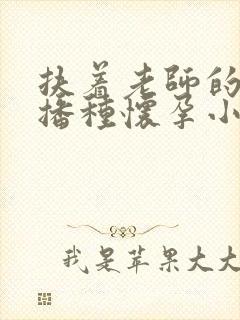 扶着老师的
播种怀孕小
我是苹果大大